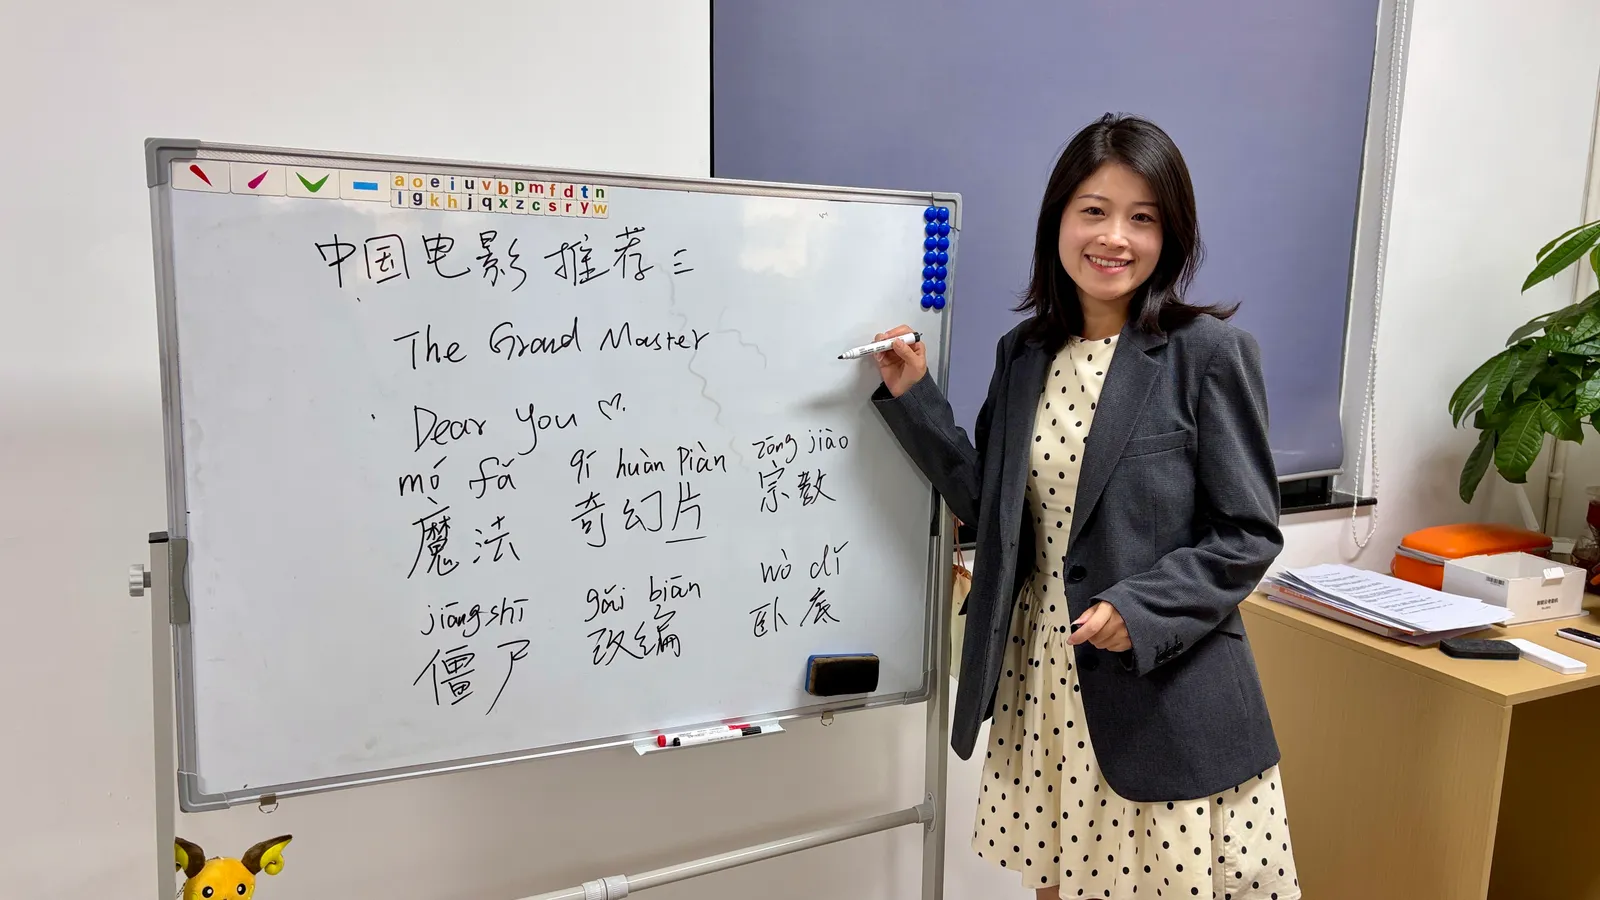 a o e i u v b p m f d t n
l g k h j q x z c s r y w
中国电影推荐三
The Grand Master
Dear you ♡.
mó fǎ qí huàn Piàn zōng jiào
魔法 奇幻片 宗教
jiāng shī gǎi biān wò dǐ
僵尸 改编 卧底